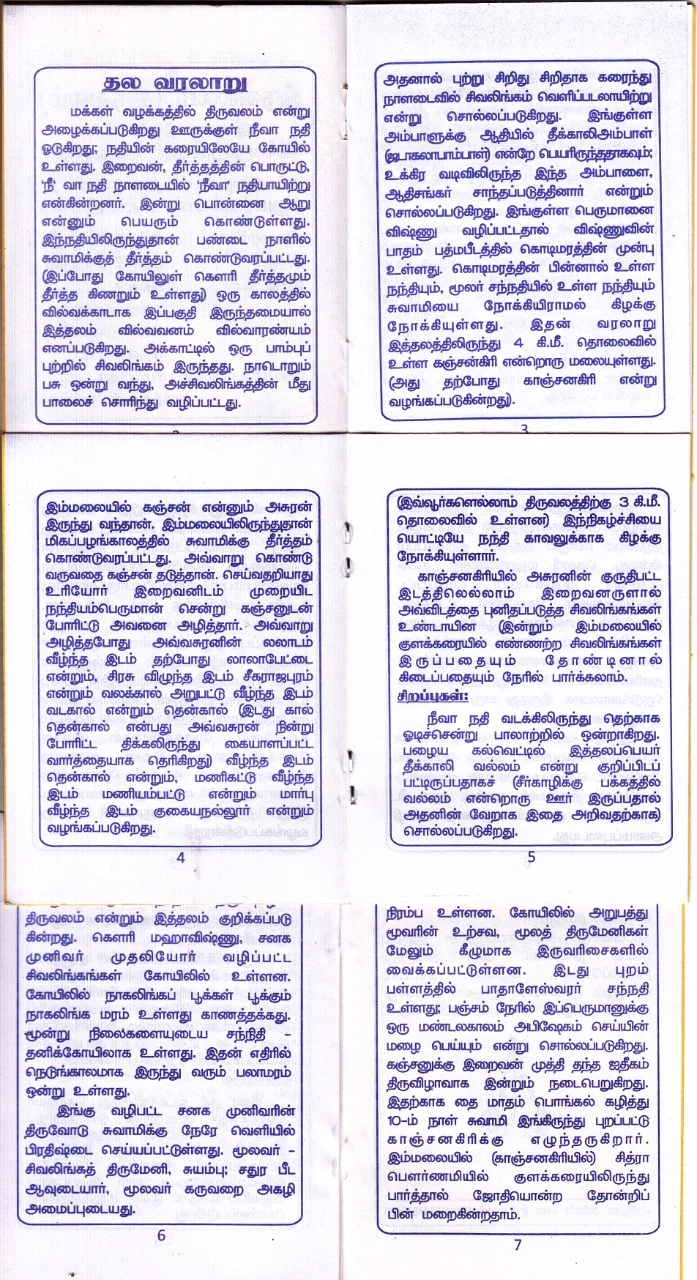 தல வரலாறு
மக்கள் வழக்கத்தில் திருவலம் என்று
அழைக்கப்படுகிறது ஊருக்குள் நீவா நதி
ஓடுகிறது; நதியின் கரையிலேயே கோயில்
உள்ளது. இறைவன், தீர்த்தத்தின் பொருட்டு,
'நீ' வா நதி நாளடையில் 'நீவா' நதியாயிற்று
என்கின்றனர். இன்று பொன்னை ஆறு
என்னும் பெயரும் கொண்டுள்ளது.
இந்நதியிலிருந்துதான் பண்டை நாளில்
சுவாமிக்குத் தீர்த்தம் கொண்டுவரப்பட்டது.
(இப்போது கோயிலுள் கௌரி தீர்த்தமும்
தீர்த்த கிணறும் உள்ளது) ஒரு காலத்தில்
வில்வக்காடாக இப்பகுதி இருந்தமையால்
இத்தலம் வில்வவனம் வில்வாரண்யம்
எனப்படுகிறது. அக்காட்டில் ஒரு பாம்புப்
புற்றில் சிவலிங்கம் இருந்தது. நாடொறும்
பசு ஒன்று வந்து, அச்சிவலிங்கத்தின் மீது
பாலைச் சொரிந்து வழிப்பட்டது.
அதனால் புற்று சிறிது சிறிதாக கரைந்து
நாளடைவில் சிவலிங்கம் வெளிப்படலாயிற்று
என்று சொல்லப்படுகிறது. இங்குள்ள
அம்பாளுக்கு ஆதியில் தீக்காலிஅம்பாள்
(ஜடாகலாபாம்பாள்) என்றே பெயரிருந்ததாகவும்;
உக்கிர வடிவிலிருந்த இந்த அம்பாளை,
ஆதிசங்கர் சாந்தப்படுத்தினார் என்றும்
சொல்லப்படுகிறது. இங்குள்ள பெருமானை
விஷ்ணு வழிப்பட்டதால் விஷ்ணுவின்
பாதம் பத்மபீடத்தில் கொடிமரத்தின் முன்பு
உள்ளது. கொடிமரத்தின் பின்னால் உள்ள
நந்தியும், மூலர் சந்நதியில் உள்ள நந்தியும்
சுவாமியை நோக்கியிராமல் கிழக்கு
நோக்கியுள்ளது. இதன் வரலாறு
இத்தலத்திலிருந்து 4 கி.மீ. தொலைவில்
உள்ள கஞ்சன்கிரி என்றொரு மலையுள்ளது.
(அது தற்போது காஞ்சனகிரி என்று
வழங்கப்படுகிறது).
3
இம்மலையில் கஞ்சன் என்னும் அசுரன்
இருந்து வந்தான். இம்மலையிலிருந்துதான்
மிகப்பழங்காலத்தில் சுவாமிக்கு தீர்த்தம்
கொண்டுவரப்பட்டது. அவ்வாறு கொண்டு
வருவதை கஞ்சன் தடுத்தான். செய்வதறியாது
உரியோர் இறைவனிடம் முறையிட
நந்தியம்பெருமான் சென்று கஞ்சனுடன்
போரிட்டு அவனை அழித்தார். அவ்வாறு
அழித்தபோது அவ்வசுரனின் லலாடம்
வீழ்ந்த இடம் தற்போது லாலாபேட்டை
என்றும், சிரசு விழுந்த இடம் சீகராஜபுரம்
என்றும் வலக்கால் அறுபட்டு வீழ்ந்த இடம்
வடகால் என்றும் தென்கால் (இடது கால்
தென்கால் என்பது அவ்வசுரன் நின்று
போரிட்ட திக்கலிருந்து கையாளப்பட்ட
வார்த்தையாக தெரிகிறது) வீழ்ந்த இடம்
தென்கால் என்றும், மணிகட்டு வீழ்ந்த
இடம் மணியம்பட்டு என்றும் மார்பு
வீழ்ந்த இடம் குகையநல்லூர் என்றும்
வழங்கப்படுகிறது.
4
(இவ்வூர்களெல்லாம் திருவலத்திற்கு 3 கி.மீ.
தொலைவில் உள்ளன) இந்நிகழ்ச்சியை
யொட்டியே நந்தி காவலுக்காக கிழக்கு
நோக்கியுள்ளார்.
காஞ்சனகிரியில் அசுரனின் குருதிபட்ட
இடத்திலெல்லாம் இறைவனருளால்
அவ்விடத்தை புனிதப்படுத்த சிவலிங்கங்கள்
உண்டாயின (இன்றும் இம்மலையில்
குளக்கரையில் எண்ணற்ற சிவலிங்கங்கள்
இருப்பதையும் தோண்டினால்
கிடைப்பதையும் நேரில் பார்க்கலாம்.
சிறப்புகள்:
நீவா நதி வடக்கிலிருந்து தெற்காக
ஓடிச்சென்று பாலாற்றில் ஒன்றாகிறது.
பழைய கல்வெட்டில் இத்தலப்பெயர்
தீக்காலி வல்லம் என்று குறிப்பிடப்
பட்டிருப்பதாகச் (சீர்காழிக்கு பக்கத்தில்
வல்லம் என்றொரு ஊர் இருப்பதால்
அதனின் வேறாக இதை அறிவதற்காக)
சொல்லப்படுகிறது.
5
திருவலம் என்றும் இத்தலம் குறிக்கப்படு
கின்றது. கௌரி மஹாவிஷ்ணு, சனக
முனிவர் முதலியோர் வழிப்பட்ட
சிவலிங்கங்கள் கோயிலில் உள்ளன.
கோயிலில் நாகலிங்கப் பூக்கள் பூக்கும்
நாகலிங்க மரம் உள்ளது காணத்தக்கது.
மூன்று நிலைகளையுடைய சந்நிதி -
தனிக்கோயிலாக உள்ளது. இதன் எதிரில்
நெடுங்காலமாக இருந்து வரும் பலாமரம்
ஒன்று உள்ளது.
இங்கு வழிபட்ட சனக முனிவரின்
திருவோடு சுவாமிக்கு நேரே வெளியில்
பிரதிஷ்டை செய்யப்பட்டுள்ளது. மூலவர் -
சிவலிங்கத் திருமேனி, சுயம்பு; சதுர பீட
ஆவுடையார், மூலவர் கருவறை அகழி
அமைப்புடையது.
6
நிரம்ப உள்ளன. கோயிலில் அறுபத்து
மூவரின் உற்சவ, மூலத் திருமேனிகள்
மேலும் கீழுமாக இருவரிசைகளில்
வைக்கப்பட்டுள்ளன. இடது புறம்
பள்ளத்தில் பாதாளேஸ்வரர் சந்நதி
உள்ளது; பஞ்சம் நேரில் இப்பெருமானுக்கு
ஒரு மண்டலகாலம் அபிஷேகம் செய்யின்
மழை பெய்யும் என்று சொல்லப்படுகிறது.
கஞ்சனுக்கு இறைவன் முத்தி தந்த ஐதீகம்
திருவிழாவாக இன்றும் நடைபெறுகிறது.
இதற்காக தை மாதம் பொங்கல் கழித்து
10-ம் நாள் சுவாமி இங்கிருந்து புறப்பட்டு
காஞ்சனகிரிக்கு எழுந்தருகிறார்.
இம்மலையில் (காஞ்சனகிரியில்) சித்ரா
பௌர்ணமியில் குளக்கரையிலிருந்து
பார்த்தால் ஜோதியொன்ற தோன்றிப்
பின் மறைகின்றதாம்.
7